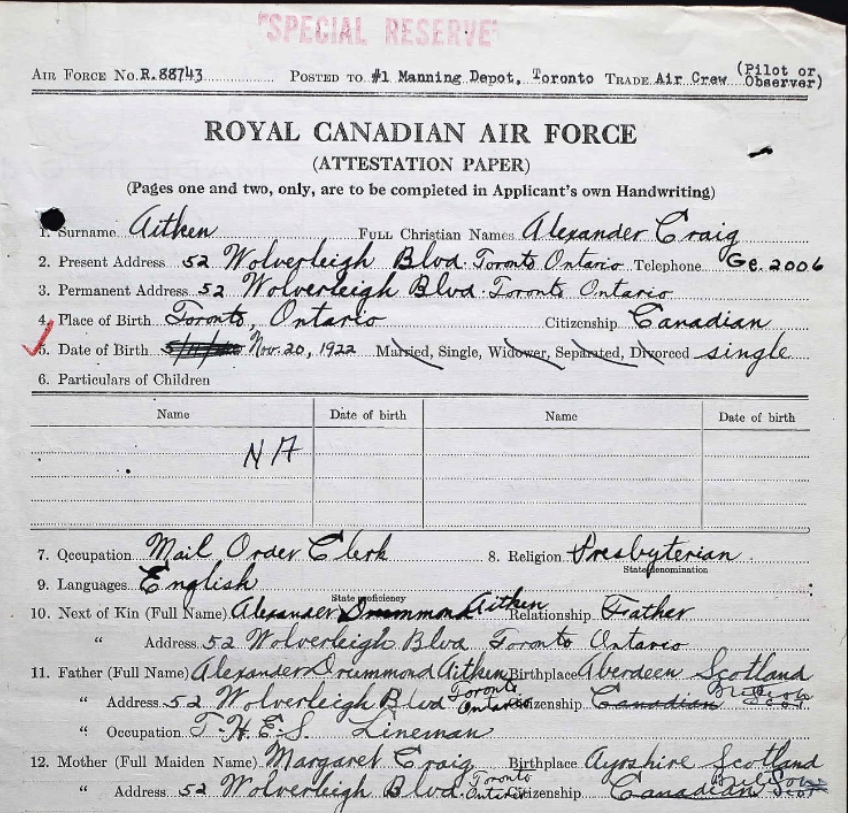 "SPECIAL RESERVE"
AIR FORCE No. R.88743 POSTED TO #1 Manning Depot, Toronto TRADE Air Crew (Pilot or Observer)
ROYAL CANADIAN AIR FORCE
(ATTESTATION PAPER)
(Pages one and two, only, are to be completed in Applicant's own Handwriting)
1. Surname Aitken FULL Christian Names Alexander Craig
2. Present Address 52 Wolverleigh Blvd. Toronto Ontario Telephone Ge. 2006
3. Permanent Address 52 Wolverleigh Blvd. Toronto Ontario
4. Place of Birth Toronto, Ontario Citizenship Canadian
5. Date of Birth Nov. 20, 1922 Married, Single, Widower, Separated, Divorced single
6. Particulars of Children
Name Date of birth Name Date of birth
NA
7. Occupation Mail Order Clerk 8. Religion Presbyterian
State denomination
9. Languages English
State proficiency
10. Next of Kin (Full Name) Alexander Drummond Aitken Relationship Father
" Address 52 Wolverleigh Blvd Toronto Ontario
11. Father (Full Name) Alexander Drummond Aitken Birthplace Aberdeen Scotland
" Address 52 Wolverleigh Blvd Toronto Ontario Citizenship Canadian
" Occupation T.H.E.S. Lineman
12. Mother (Full Maiden Name) Margaret Craig Birthplace Ayrshire Scotland
" Address 52 Wolverleigh Blvd. Toronto Ontario Citizenship Canadian